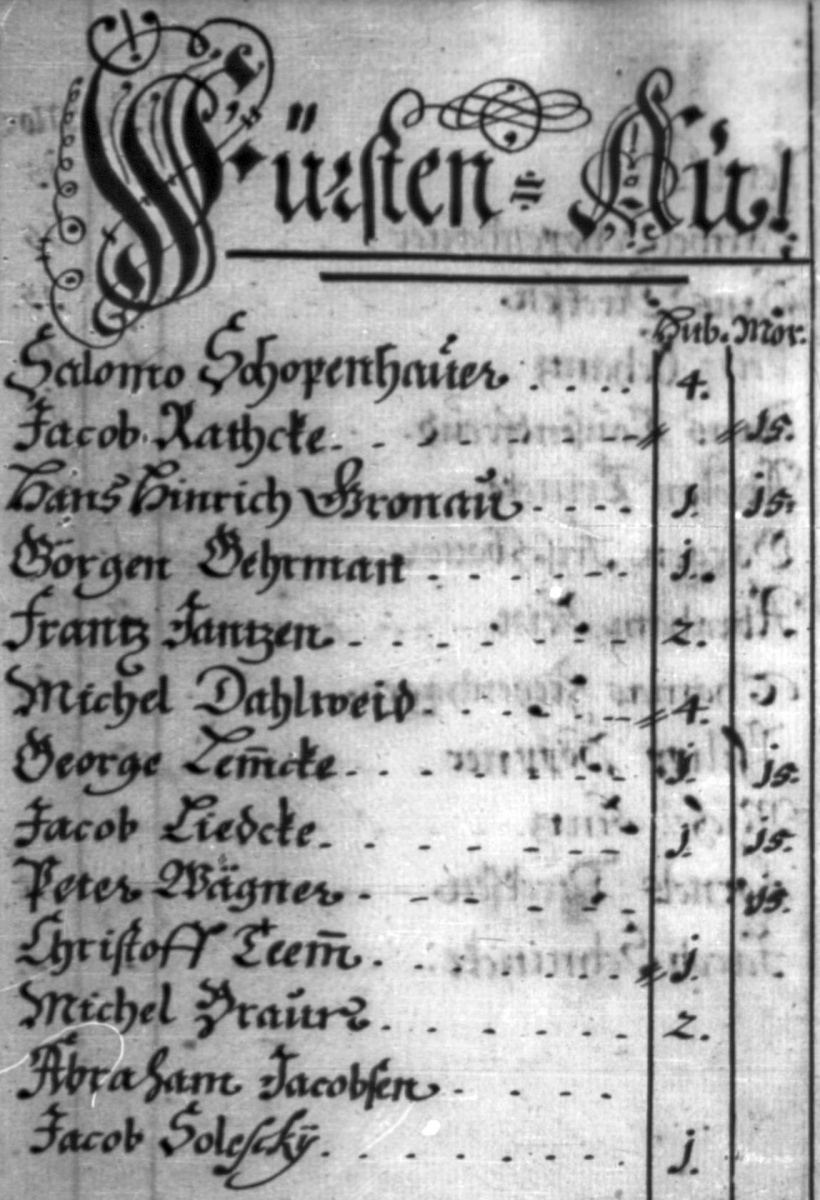 Fürsten=Au!
Hub. Mor.
Salomo Schopenhauer . . . . 4.
Jacob Rathcke - - - - - - - 15.
Hans Hinrich Gronau . . . . 1. 15.
Görgen Gehrman . . . . . 1.
Frantz Jantzen . . . . . . 2.
Michel Dahlweid . . . . . 4.
George Lem̄cke . . . . . . . 1. 15.
Jacob Liedcke . . . . . . . 1. 15.
Peter Wägner . . . . . . 15.
Christoff Teem̄ . . . . . . . 1.
Michel . . . . . . 2.
Abraham Jacobsen . . . .
Jacob Solesckÿ . . . . . . . . 1.